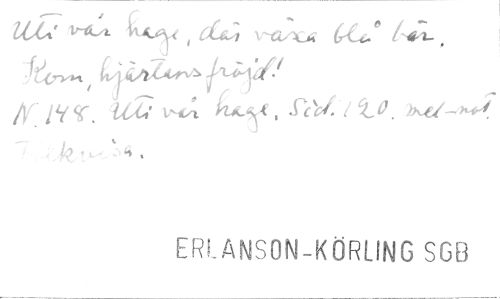 Uti vår hage, där växa blå bär.
Kom, hjärtans fröjd!
N. 148. Uti vår hage. Sid. 120. mel-not.
Folkvisa.
ERLANSON-KÖRLING SGB